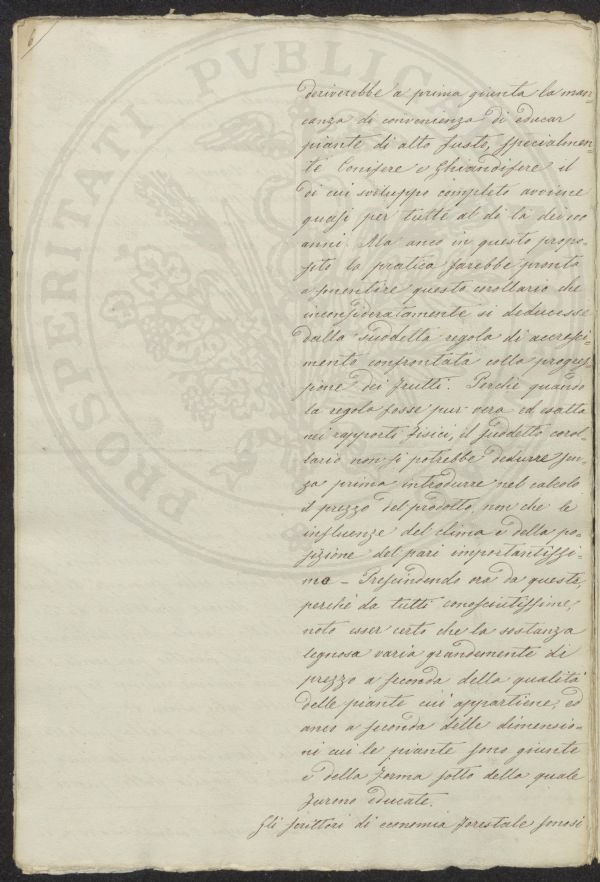 6
deriverebbe a prima giunta la man-
canza di convenienza di educar
piante di alto fusto, specialmen-
te Conifere e Ghiandifere il
di cui sviluppo completo avviene
quasi per tutte al di là dei 100
anni. Ma anco in questo propo-
sito la pratica sarebbe pronta
a smentire questo corollario che
inconsideratamente si deducesse
dalla suddetta regola di accresci-
mento confrontata colla progres-
sione dei frutti. Perchè quando
la regola fosse pur vera ed esatta
nei rapporti fisici, il suddetto corol-
lario non si potrebbe dedurre sen-
za prima introdurre nel calcolo
il prezzo del prodotto, non che le
influenze del clima e della po-
sizione del pari importantissi-
ma - Prescindendo ora da queste,
perchè da tutti conosciutissime,
noto esser certo che la sostanza
legnosa varia grandemente di
prezzo a seconda della qualità
delle piante cui appartiene, ed
anco a seconda delle dimensio-
ni cui le piante sono giunte
e della forma sotto della quale
furono educate.
Gli scrittori di economia forestale sonosi
PROSPERITATI PVBLICA